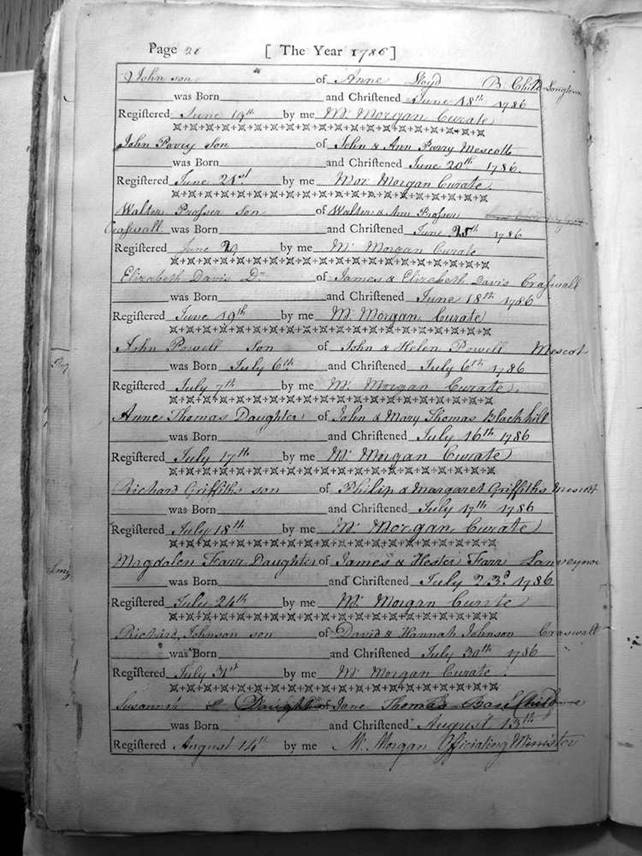 Page 20 [ The Year 1786 ]
John son of Anne Lloyd B. Child Longtown
was Born and Chriſtened June 18th 1786
Regiſtered June 19th by me Wm Morgan Curate
John Parry son of John & Ann Parry Mescott
was Born and Chriſtened June 20th 1786.
Regiſtered June 21st by me Wm Morgan Curate
Walter Prosser Son of Walter & Ann Prosser
Craswall was Born and Chriſtened June 25th 1786
Regiſtered June 29 by me Wm Morgan Curate
Elizabeth Davis Dr of James & Elizabeth Davis Craswall
was Born and Chriſtened June 18th 1786
Regiſtered June 19th by me Wm Morgan Curate
John Powell Son of John & Helen Powell Mescot
was Born July 6th and Chriſtened July 6th 1786
Regiſtered July 7th by me Wm Morgan Curate
Anne Thomas Daughter of John & Mary Thomas Black hill
was Born and Chriſtened July 16th 1786
Regiſtered July 17th by me Wm Morgan Curate
Richard Griffiths son of Philip & Margaret Griffiths Mescott
was Born and Chriſtened July 17th 1786
Regiſtered July 18th by me Wm Morgan Curate
Magdalen Farr Daughter of James & Hester Farr
was Born and Chriſtened July 23d 1786
Regiſtered July 24th by me Wm Morgan Curate
Richard Johnson son of David & Hannah Johnson Craswall
was Born and Chriſtened July 30th 1786
Regiſtered July 31st by me Wm Morgan Curate
Susannah Daughter of Jane Thomas Base Child
was Born and Chriſtened August 13th
Regiſtered August 14th by me Wm Morgan Officiating Minister